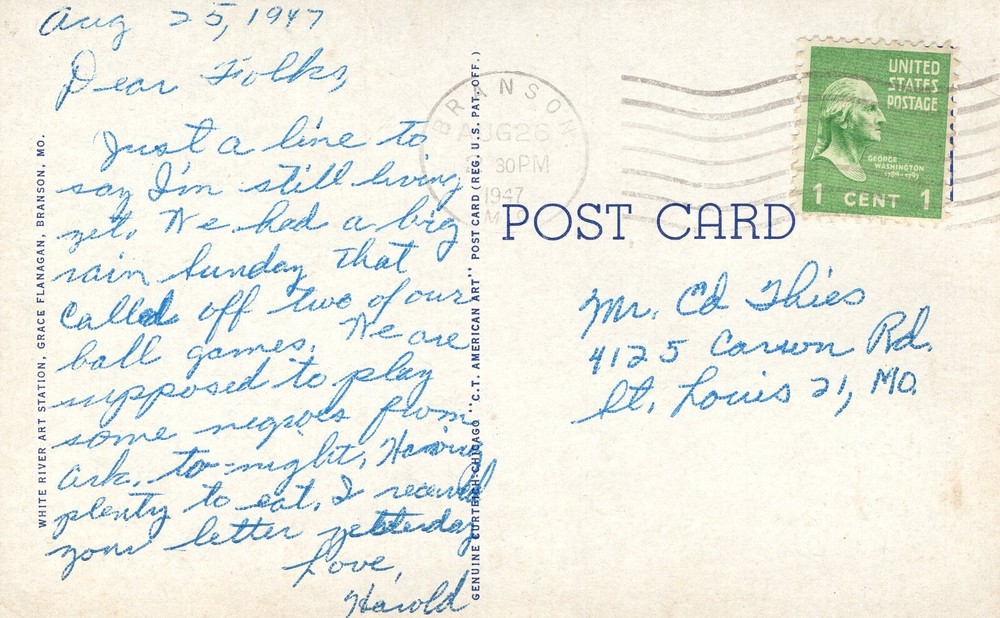 Aug 25, 1947
Dear Folks,
Just a line to
say I'm still living
yet. We had a big
rain Sunday that
called off two of our
ball games. We are
supposed to play
some negroes from
Ark. to-night. Having
plenty to eat. I received
your letter yesterday
Love,
Harold
WHITE RIVER ART STATION, GRACE FLANAGAN, BRANSON, MO.
GENUINE CURTEICH-CHICAGO "C.T. AMERICAN ART" POST CARD (REG. U.S. PAT. OFF.)
BRANSON
AUG 26
30 PM
1947
M
UNITED
STATES
POSTAGE
GEORGE
WASHINGTON
1789-1797
1 CENT 1
POST CARD
Mr. Ed Thies
4125 Carson Rd.
St. Louis 21, MO.